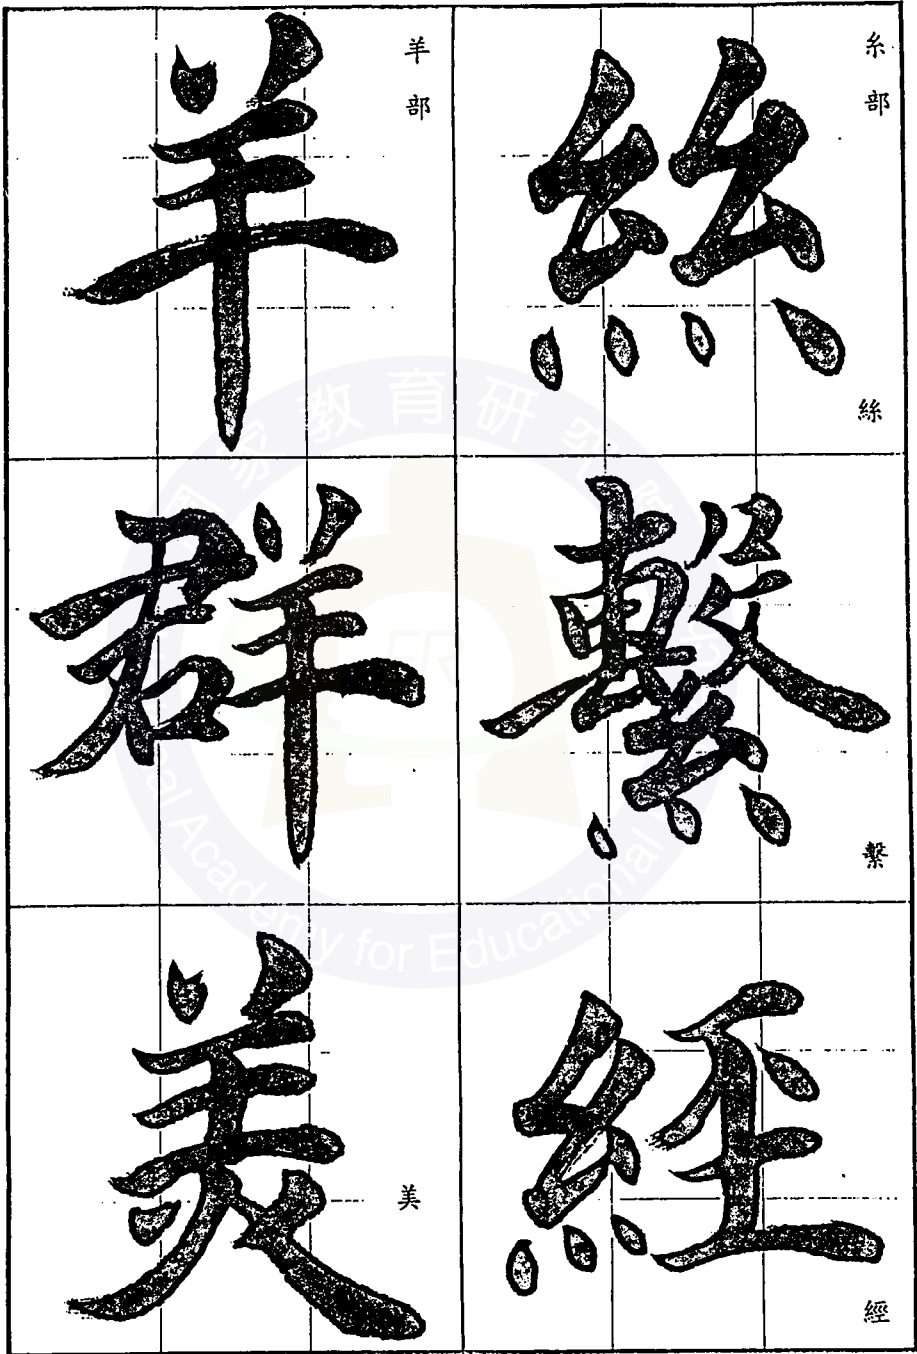 糸部
絲
絲
繫
繫
經
經
羊部
羊
群
美
美
國家教育研究院
National Academy for Educational